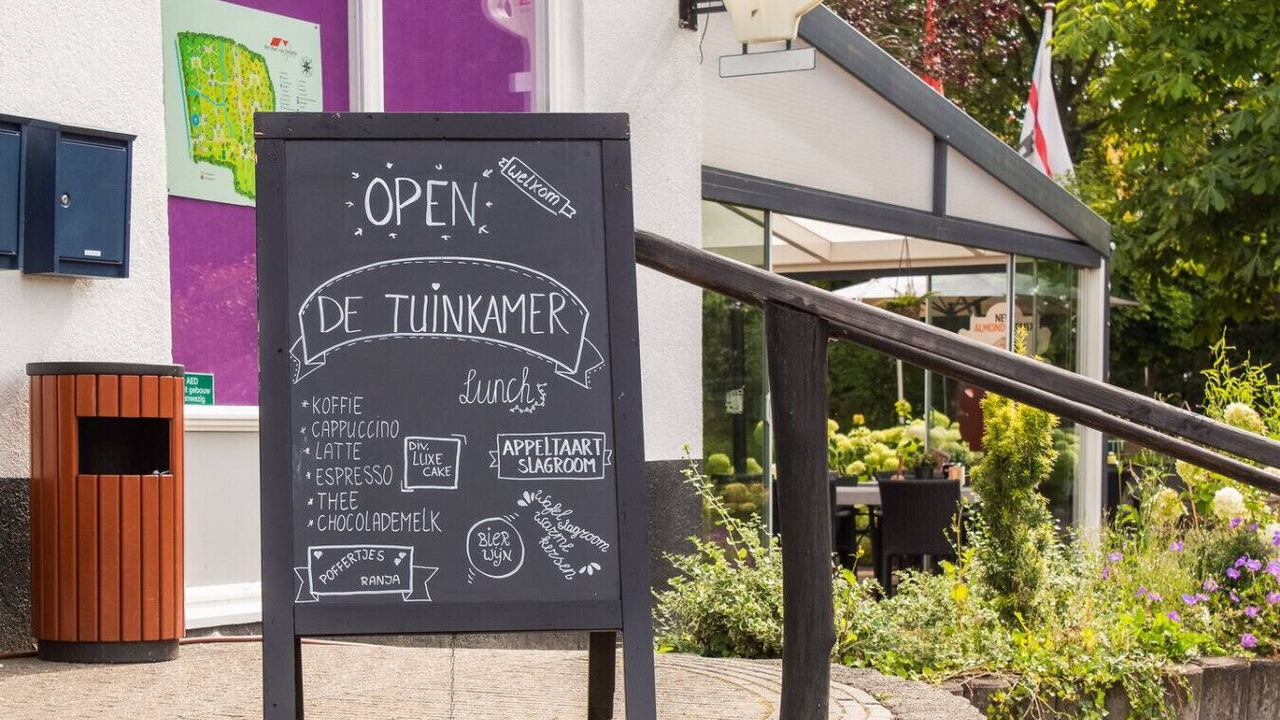 OPEN
welkom
DE TUINKAMER
Lunch
* KOFFIE
* CAPPUCCINO
* LATTE
* ESPRESSO
* THEE
* CHOCOLADEMELK
DIV.
LUXE
CAKE
APPELTAART
SLAGROOM
BIER
WIJN
Wafel slagroom
warme
kersen
POFFERTJES
RANJA
AED
gebouw
NE
ALMOND